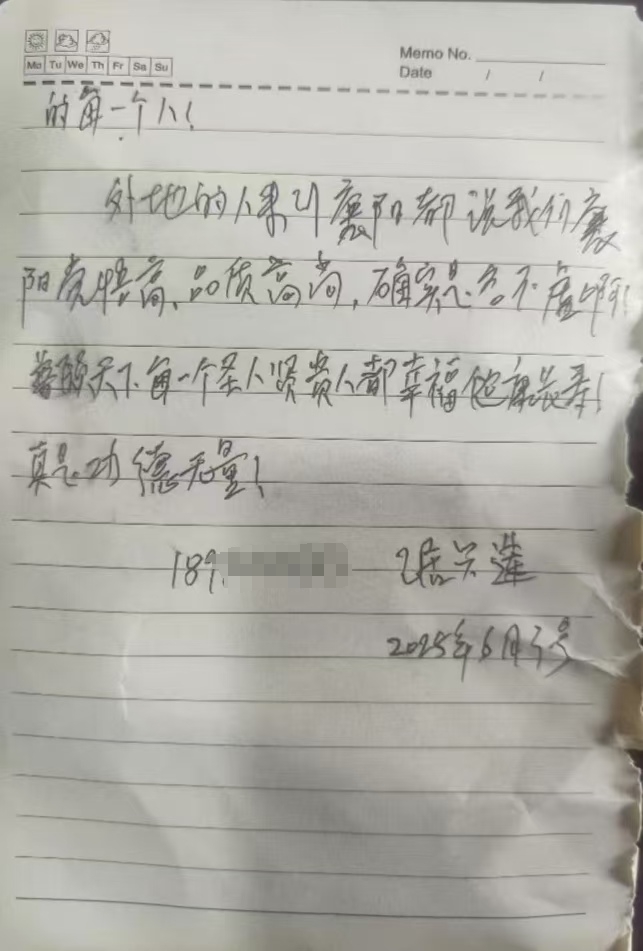 Mo Tu We Th Fr Sa Su
Memo No.
Date / /
的每一个人!
外地的人来到襄阳都说我们襄
阳觉悟高、品质高尚,确实是名不虚啊!
愿天下每一个圣人贤贵人都幸福健康长寿!
真是功德无量!
189
2025年6月 号